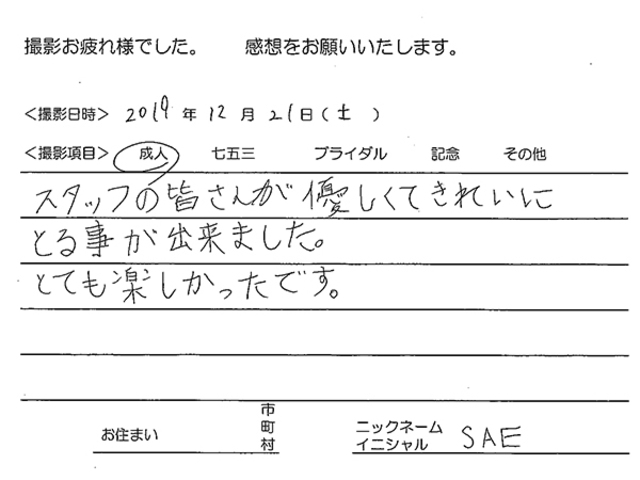 撮影お疲れ様でした。　感想をお願いいたします。
<撮影日時> 2019 年 12 月 21 日 (土)
<撮影項目> 成人　七五三　ブライダル　記念　その他
スタッフの皆さんが優しくてきれいに
とる事が出来ました。
とても楽しかったです。
お住まい　市町村　ニックネーム イニシャル SAE